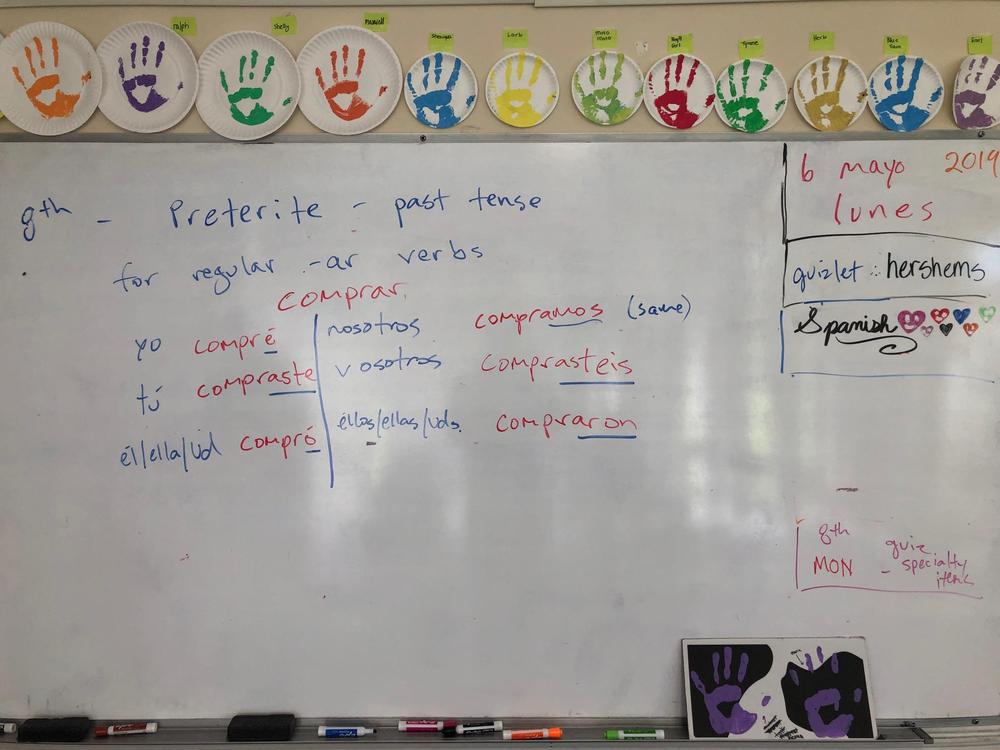 ralph
shelly
muriell
Larb
Herb
Earl
8th - Preterite - past tense
for regular -ar verbs
comprar
yo compré
tú compraste
él/ella/Ud compró
nosotros compramos (same)
vosotros comprasteis
ellos/ellas/Uds. compraron
6 mayo 2019
lunes
quizlet : hershems
Spanish
8th
MON - quiz
specialty
items